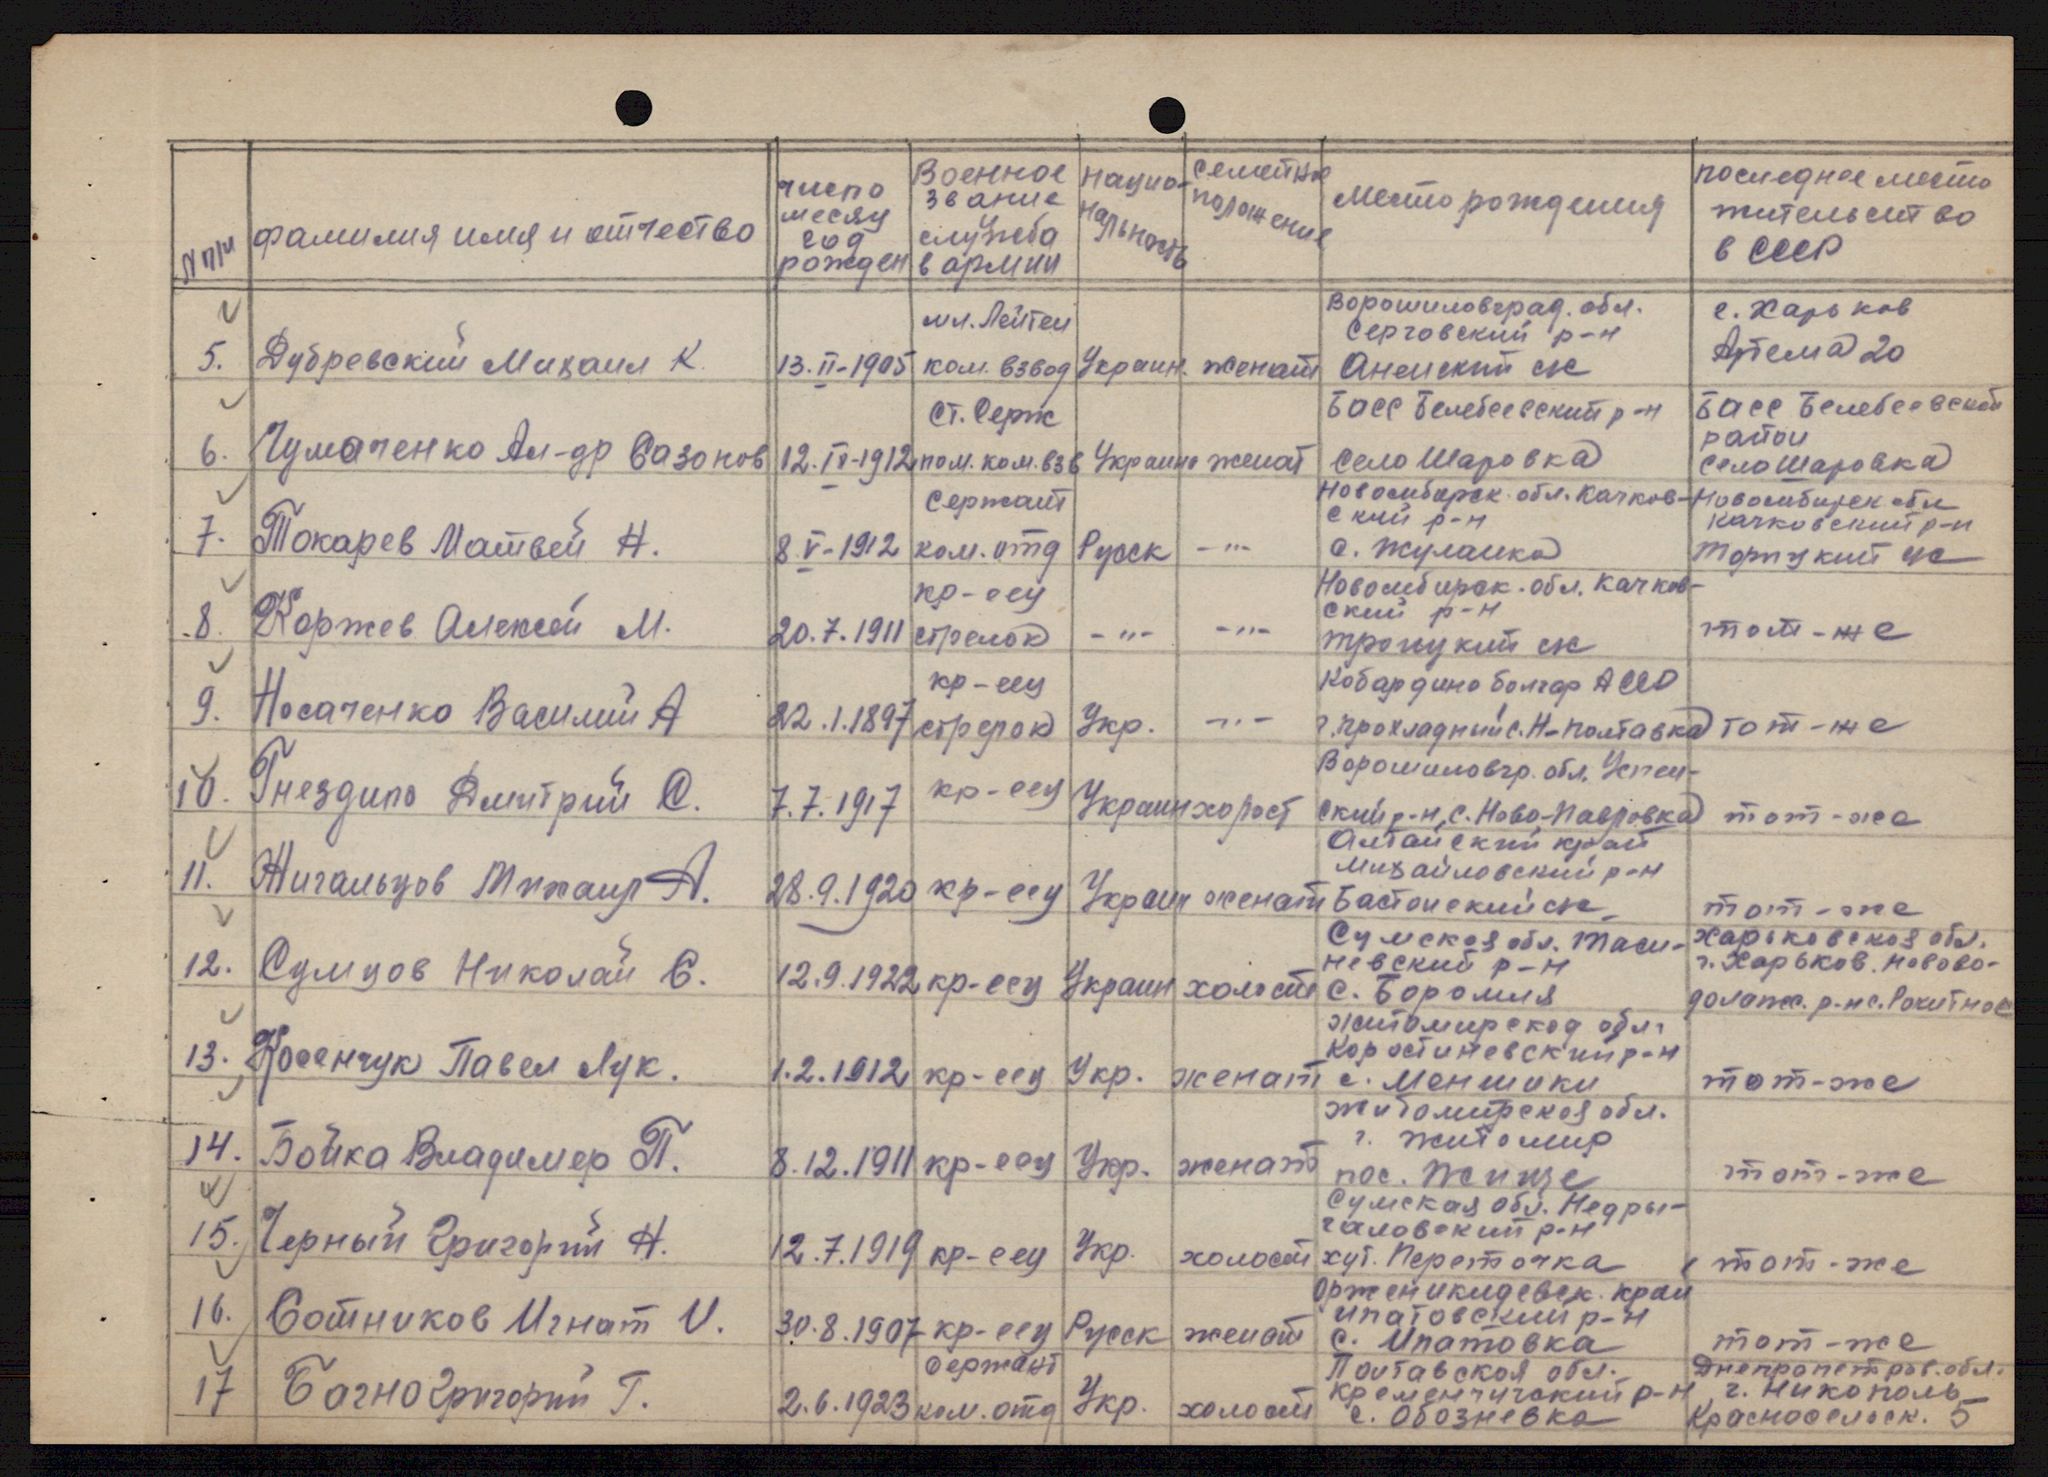 N п/п
фамилия имя и отчество
число месяц год рожден
Военное звание служба в армии
Нацио-нальность
Семейное положение
Место рождения
последнее место жительство в СССР
5. Дубревский Михаил К. 13.II-1905 мл. Лейтен ком. взвод Украин. женат Ворошиловград. обл. Серговский р-н с. Харьков Артема 20
6. Чумаченко Ал-др Сазонов 12.IV-1912 ст. Серж пом. ком. взв Украине женат Басс Белебеевский р-н село Шаровка Басс Белебеевской район село Шаровка
7. Токарев Матвей Н. 8.V-1912 Сержант ком. отд Русск -"- Новосибирск. обл. Качков-ский р-н с. Жуланка Новосибирск обл Качковский р-н
8. Коржев Алексей М. 20.7.1911 кр-еец стрелок -"- -"- Новосибирск. обл. Качков-ский р-н Троцкий с/с тот-же
9. Носаченко Василий А 22.1.1897 кр-еец стрелок Укр. -"- Кобардино болгар АССР г. Прохладный с. Н-Полтавка тот-же
10. Гнездило Дмитрий С. 7.7.1917 кр-еец Украин холост Ворошиловгр. обл. Успен-ский р-н, с. Ново-Павловка тот-же
11. Жигальцов Михаил А. 28.9.1920 кр-еец Украин женат Алтайский край Михайловский р-н тот-же
12. Сумцов Николай С. 12.9.1922 кр-еец Украин холост Сумская обл. с. Боромля Харьковская обл. г. Харьков. Ново-во-долаж. р-н с. Рокитное
13. Косенчук Павел Лук. 1.2.1912 кр-еец Укр. женат Житомирской обл. Коростишевский р-н с. Меншики тот-же
14. Бойка Владимер П. 8.12.1911 кр-еец Укр. женат Житомирская обл. г. Житомир пос. тот-же
15. Черный Григорий Н. 12.7.1919 кр-еец Укр. холост Сумская обл. Недры-галовский р-н хут. Переточка тот-же
16. Сотников Игнат И. 30.8.1907 кр-еец Русск женат Орженикидевск. край Ипатовский р-н с. Ипатовка тот-же
17 Багно Григорий Г. 2.6.1923 Сержант ком. отд Укр. холост Полтавская обл. Кременчугский р-н с. Обозневка Днепропетров. обл. г. Никополь Красносельск. 5